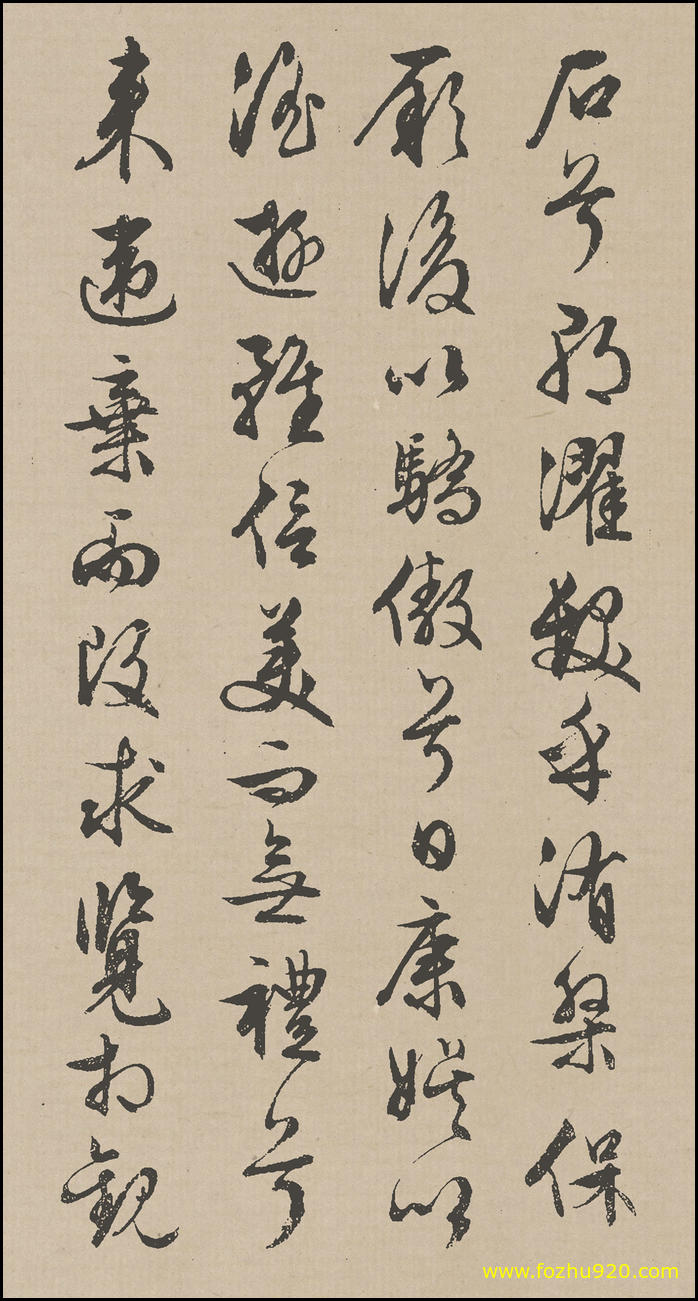 石兮朝濯髮乎洧槃保
厥後以驕傲兮日康娛以
淫遊雖信美而無禮兮
来違棄而改求覽相觀
www.fozhu920.com